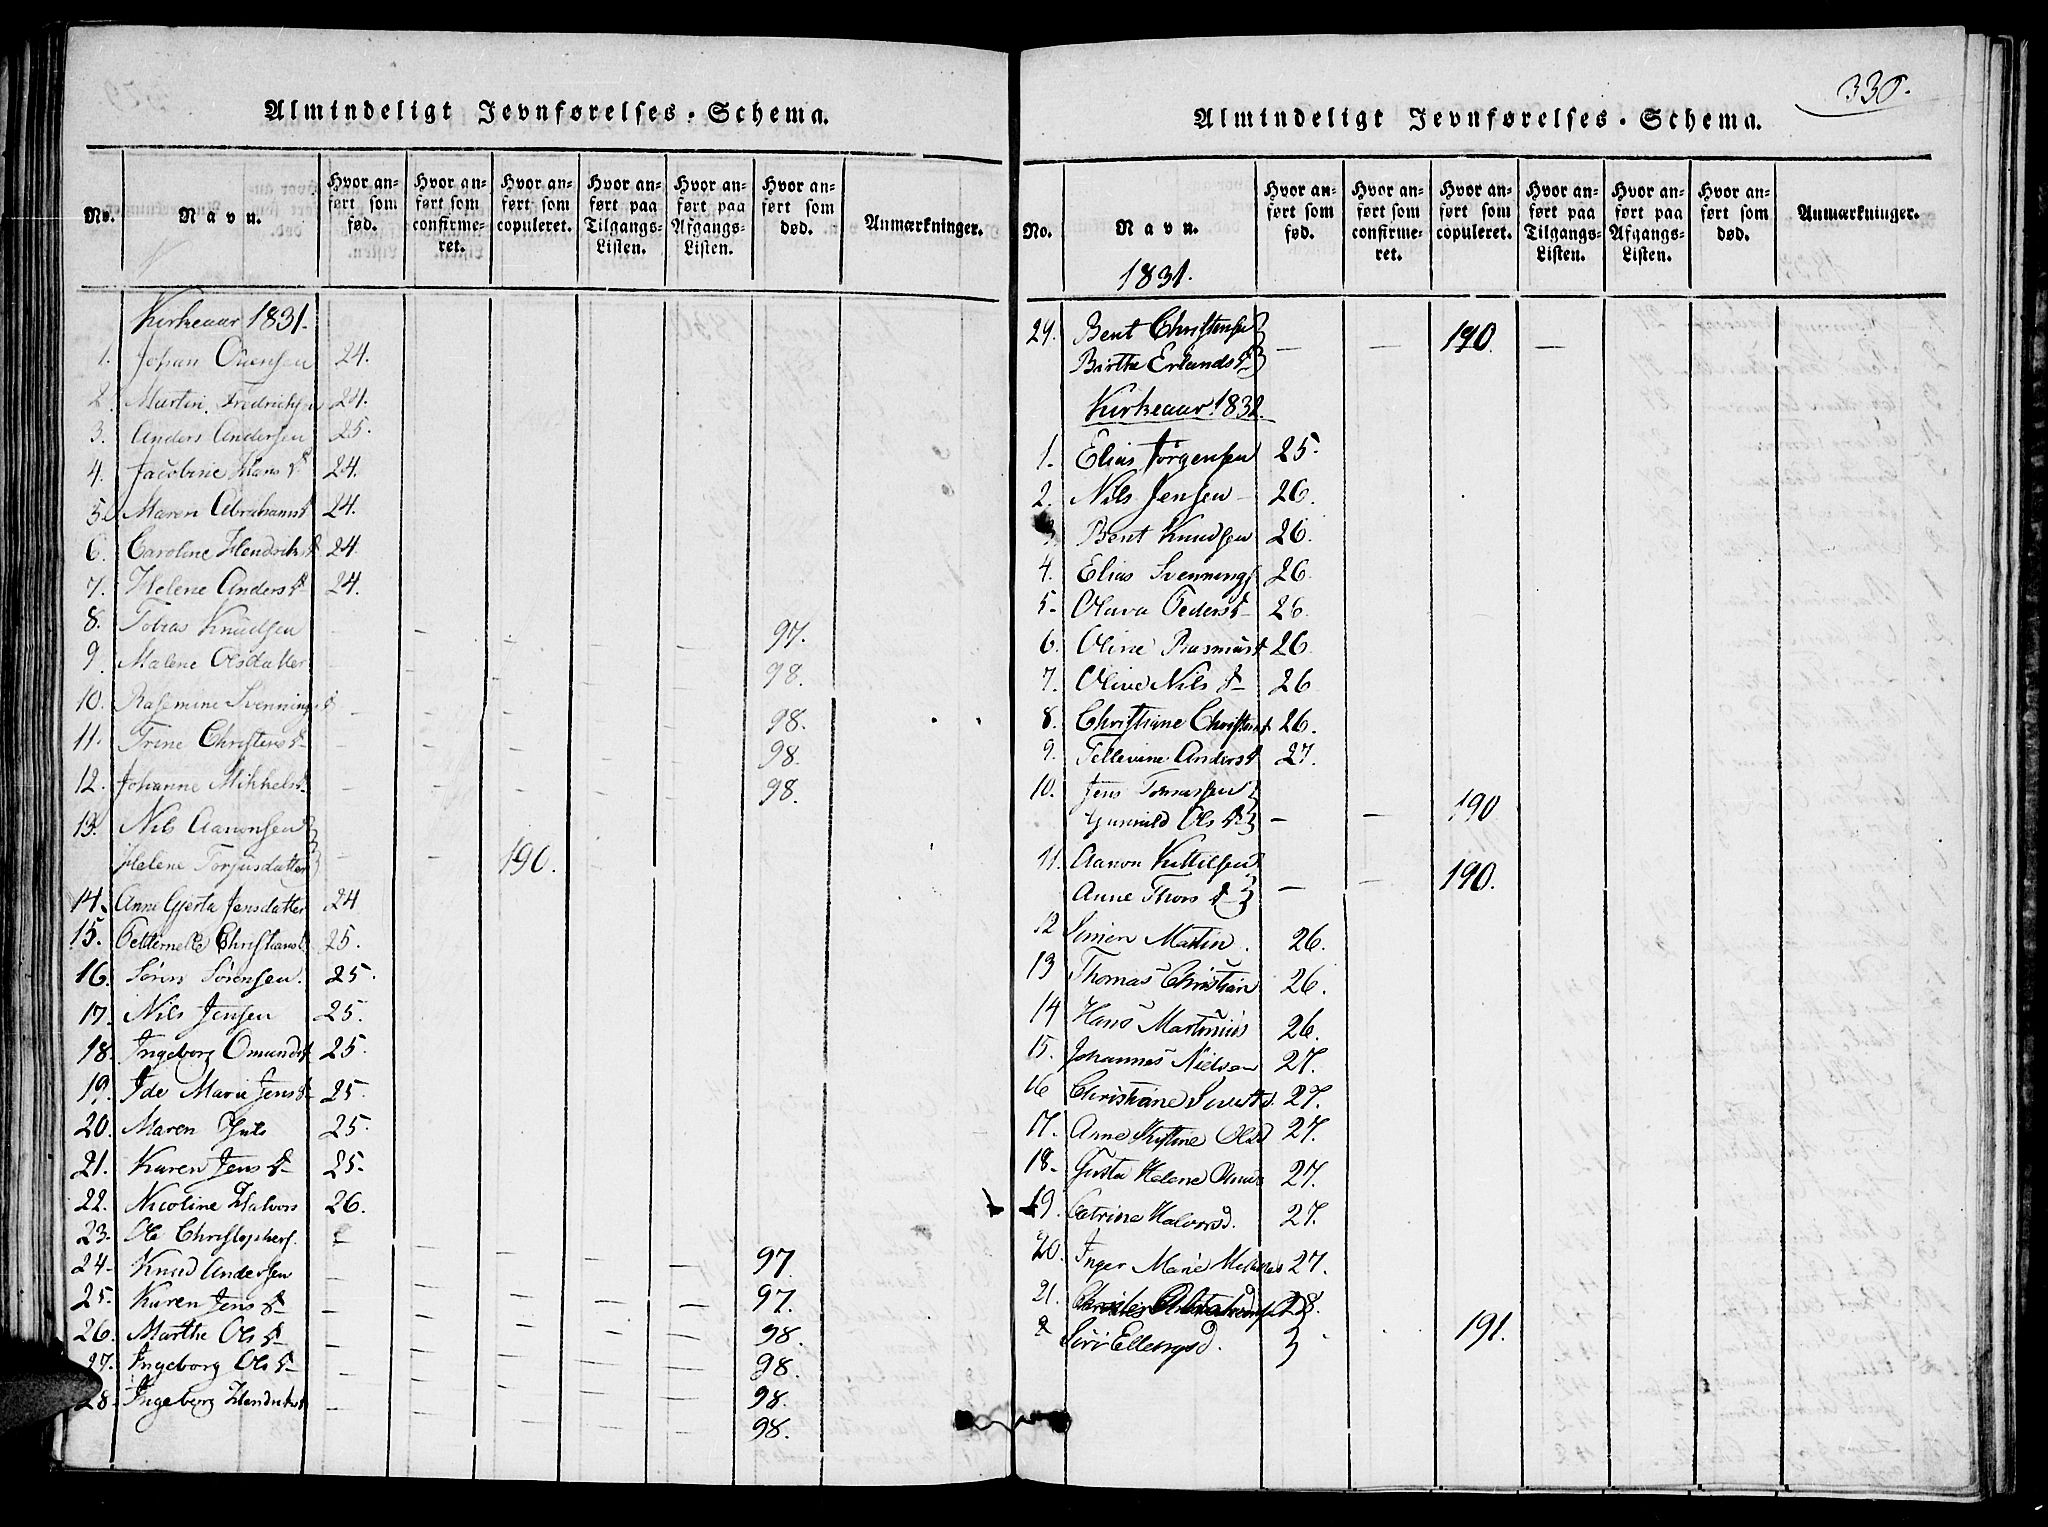 Almindeligt Jevnførelses-Schema.
No. Navn. Hvor anført som fød. Hvor anført som confirmeret. Hvor anført som copuleret. Hvor anført paa Tilgangs-Listen. Hvor anført paa Afgangs-Listen. Hvor anført som død. Anmærkninger.
Kirkeaar 1831.
1. Johan Olensen 24.
2. Martin Fredrichsen 24.
3. Anders Andersen 25.
4. Jacobine Hans D 24.
5. Maren Abrahamsd 24.
6. Caroline Hendriksd 24.
7. Helene Anders D 24.
8. Tobias Knudsen — — — — — 97.
9. Malene Olsdatter — — — — — 98.
10. Rasemine Svennings d — — — — — 98.
11. Trine Christens D — — — — — 98.
12. Johanne Mikkelsd — — — — — 98.
13. Nils Aanonsen
Helene Torjusdatter — — 190.
14. Anne Gjerta Jensdatter 24
15. Petternelle Christiansd 25.
16. Sören Sörensen. 25.
17. Nils Jensen 25.
18. Ingeborg Omundsd 25.
19. Ide Marie Jens D 25.
20. Maren 25.
21. Karen Jens D 25.
22. Nicoline Halvors 26.
23. Ole Christophers. — — — — — 97.
24. Knud Andersen — — — — — 97.
25. Karen Jens D — — — — — 98.
26. Marthe Ols D — — — — — 98.
27. Ingeborg Ols D — — — — — 98.
28. Ingeborg Hendriksd — — — — — 98.
330.
Almindeligt Jevnførelses-Schema.
No. Navn. Hvor anført som fød. Hvor anført som confirmeret. Hvor anført som copuleret. Hvor anført paa Tilgangs-Listen. Hvor anført paa Afgangs-Listen. Hvor anført som død. Anmærkninger.
1831.
29. Bent Christensen
Birthe Erlands D — — 190. —
Kirkeaar 1832.
1. Elias Jörgensen 25.
2. Nils Jensen 26.
3 Bent Knudsen 26.
4. Elias Svennings 26.
5. Olava Peders D 26.
6. Oline Rasmusd 26.
7. Olive Nils D 26.
8. Christiane Christensd 26.
9. Tellevine Andersd 27.
10. Jens Tomassen
Gunnild Ols D — — 190
11. Aanon Kittelsen
Anne Thors D — — 190.
12 Simen Martin. 26.
13 Thomas Christian 26.
14 Hans Martinius 26.
15. Johannes Nielsen 27.
16 Christiane 27.
17. Anne Kistine Olsd 27.
18. Helene 27.
19. Catrine Halvorsd. 27.
20. Inger Marie 27.
21. 28.
Siri Ellevsd. 191.